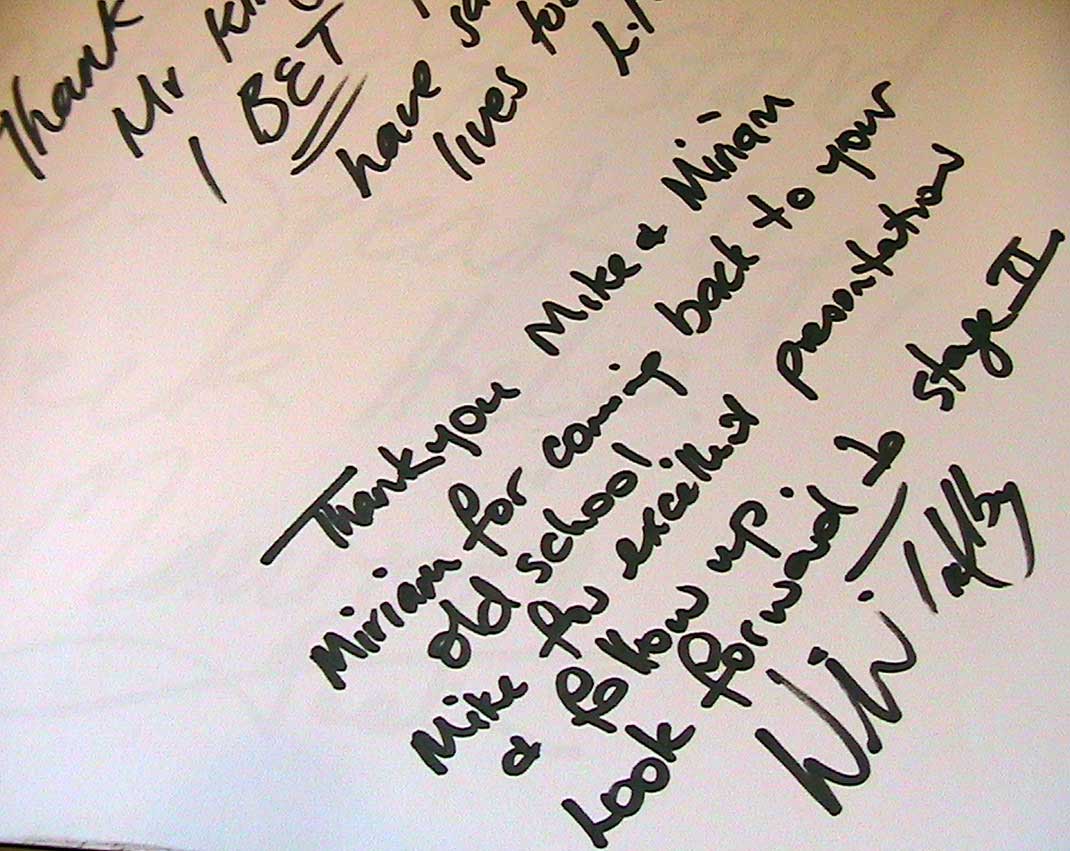 Thank
Mr
I BET
have
lives
Thank you Mike & Miriam
Miriam for coming back to your
old school
Mike for excellent presentation
& follow up
Look forward to stage II